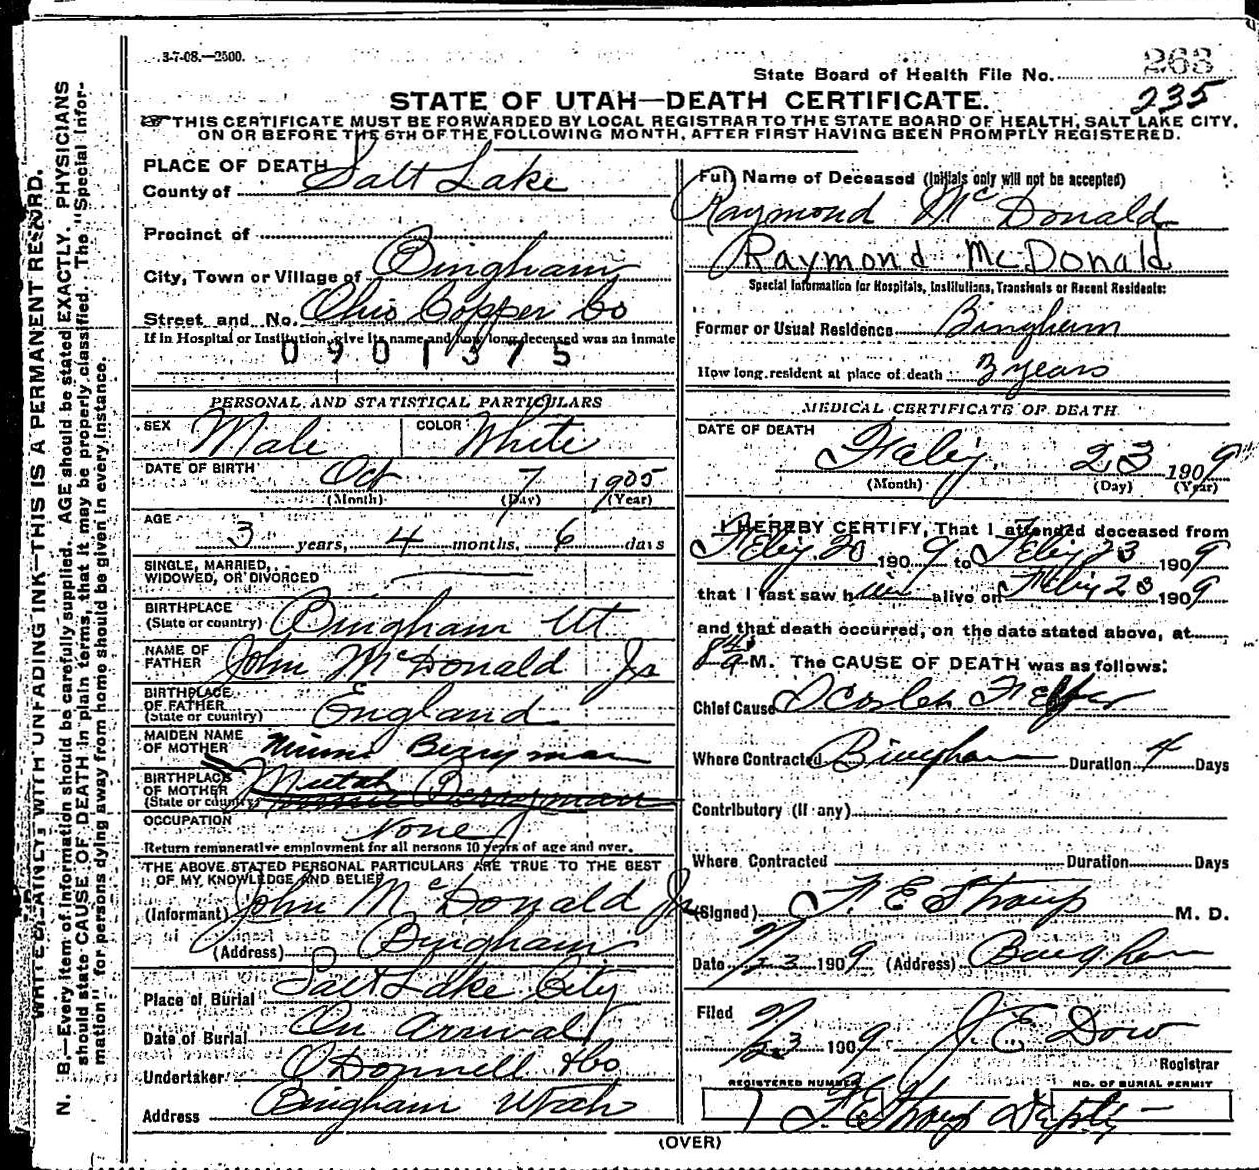 3-7-08.—2500.
263
State Board of Health File No.
235
STATE OF UTAH—DEATH CERTIFICATE.
THIS CERTIFICATE MUST BE FORWARDED BY LOCAL REGISTRAR TO THE STATE BOARD OF HEALTH, SALT LAKE CITY,
ON OR BEFORE THE 5TH OF THE FOLLOWING MONTH, AFTER FIRST HAVING BEEN PROMPTLY REGISTERED.
WRITE PLAINLY WITH UNFADING INK—THIS IS A PERMANENT RECORD.
N. B.—Every item of information should be carefully supplied. AGE should be stated EXACTLY. PHYSICIANS
should state CAUSE OF DEATH in plain terms, that it may be properly classified. The "Special Infor-
mation" for persons dying away from home should be given in every instance.
PLACE OF DEATH
County of Salt Lake
Precinct of
City, Town or Village of Bingham
Street and No. Ohio Copper Co
If in Hospital or Institution, give its name and how long deceased was an inmate
0901375
PERSONAL AND STATISTICAL PARTICULARS
SEX Male COLOR White
DATE OF BIRTH Oct 7 1905
(Month) (Day) (Year)
AGE 3 years, 4 months, 6 days
SINGLE, MARRIED,
WIDOWED, OR DIVORCED
BIRTHPLACE
(State or country) Bingham Ut
NAME OF
FATHER John McDonald Jr
BIRTHPLACE
OF FATHER
(State or country) England
MAIDEN NAME
OF MOTHER Minnie Berryman
BIRTHPLACE
OF MOTHER
(State or country) Berryman
OCCUPATION None
Return remunerative employment for all persons 10 years of age and over.
THE ABOVE STATED PERSONAL PARTICULARS ARE TRUE TO THE BEST
OF MY KNOWLEDGE AND BELIEF
(Informant) John McDonald Jr
(Address) Bingham
Place of Burial Salt Lake City
Date of Burial On Arrival
Undertaker O'Donnell & Co
Address Bingham Utah
Full Name of Deceased (Initials only will not be accepted)
Raymond McDonald
Raymond McDonald
Special Information for Hospitals, Institutions, Transients or Recent Residents:
Former or Usual Residence Bingham
How long resident at place of death 3 years
MEDICAL CERTIFICATE OF DEATH
DATE OF DEATH
Feby. 23 1909
(Month) (Day) (Year)
I HEREBY CERTIFY, That I attended deceased from
Feby 20 1909 to Feby 23 1909
that I last saw him alive on Feby 23 1909
and that death occurred, on the date stated above, at
M. The CAUSE OF DEATH was as follows:
Chief Cause Scarlet Fever
Where Contracted Bingham Duration 4 Days
Contributory (if any)
Where Contracted Duration Days
(Signed) F. E. Straup M. D.
Date 2/23 1909 (Address) Bingham
Filed
2/23 1909 J. E. Dow
Registrar
REGISTERED NUMBER NO. OF BURIAL PERMIT
7 F E Straup Deputy
(OVER)